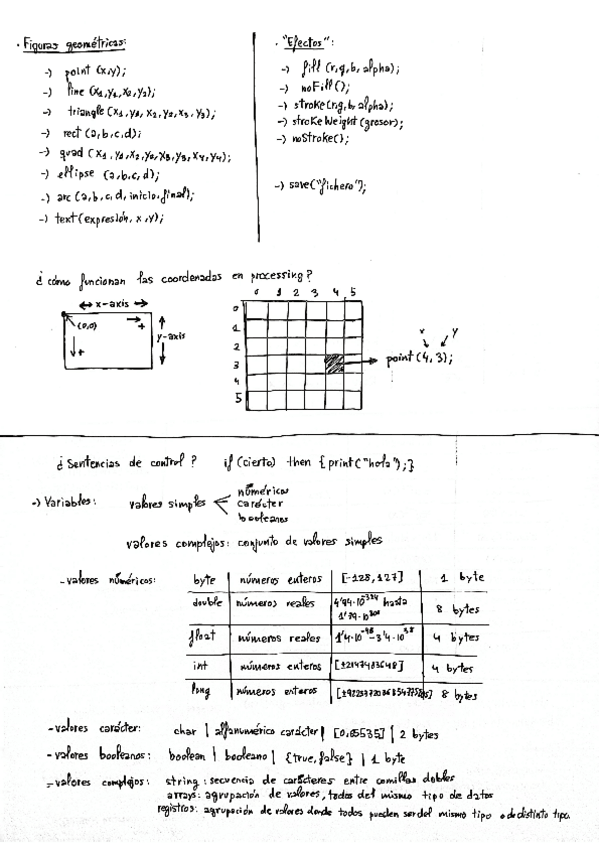 · Figuras geométricas:
-) point (x,y);
-) line (x1,y1,x2,y2);
-) triangle (x1,y1,x2,y2,x3,y3);
-) rect (a,b,c,d);
-) quad (x1,y1,x2,y2,x3,y3,x4,y4);
-) ellipse (a,b,c,d);
-) arc (a,b,c,d, inicio, final);
-) text (expresión, x,y);
· "Efectos":
-) fill (r,g,b, alpha);
-) noFill ();
-) stroke (r,g,b, alpha);
-) strokeWeight (grosor);
-) noStroke();
-) save("fichero");
¿cómo funcionan las coordenadas en processing?
x-axis
(0,0)
+
+
y-axis
0 1 2 3 4 5
0
1
2
3
4
5
x y
point (4,3);
¿Sentencias de control? if (cierto) then {print("hola");}
-) Variables: valores simples
numéricos
carácter
booleanos
valores complejos: conjunto de valores simples
-valores numéricos: byte | números enteros | [-128,127] | 1 byte
double | números reales | 4'94·10^-324 hasta 1'79·10^308 | 8 bytes
float | números reales | 1'4·10^-45 - 3'4·10^38 | 4 bytes
int | números enteros | [±2147483648] | 4 bytes
long | números enteros | 8 bytes
-valores carácter: char | alfanumérico carácter | [0,65535] | 2 bytes
-valores booleanos: boolean | booleano | {true,false} | 1 byte
-valores complejos: string: secuencia de carácteres entre comillas dobles
arrays: agrupación de valores, todos del mismo tipo de datos
registros: agrupación de valores donde todos pueden ser del mismo tipo o de distinto tipo.